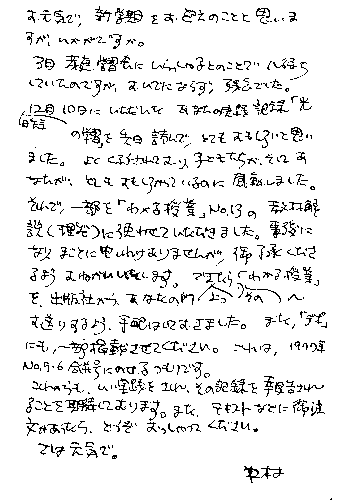 お元気で、新学期をむかえのことと思いま
すが、いかがですか。
3月 奈良 学習会にいらっしゃるとのことで 心待ち
していたのですが、おいでにならず、残念でした。
12月10日にいただいた あなたの実践記録「光
の学習を先日読んで、とてもおもしろいと思い
ました。よくくふうされており、子どもたちが、そしてあ
なたが、とてもおもしろがっているのに感動しました。
それで、一部を「わかる授業」No.13の 教材解
説(理科)に使わせていただきました。事後に
なり まことに申しわけありませんが、御了承くださ
るよう おねがいいたします。できたら「わかる授業」
を、出版社から、あなたの所へ
お送りするよう、手配はしておきました。また、「
にも、一部掲載させてください。これは、1979年
No.5・6 合併号にのせるつもりです。
これからも、いい実践をされ、その記録を報告され
ることを期待しております。また、テキストなどに御注
文があれたら、どうぞおっしゃってください。
では元気で。
中村